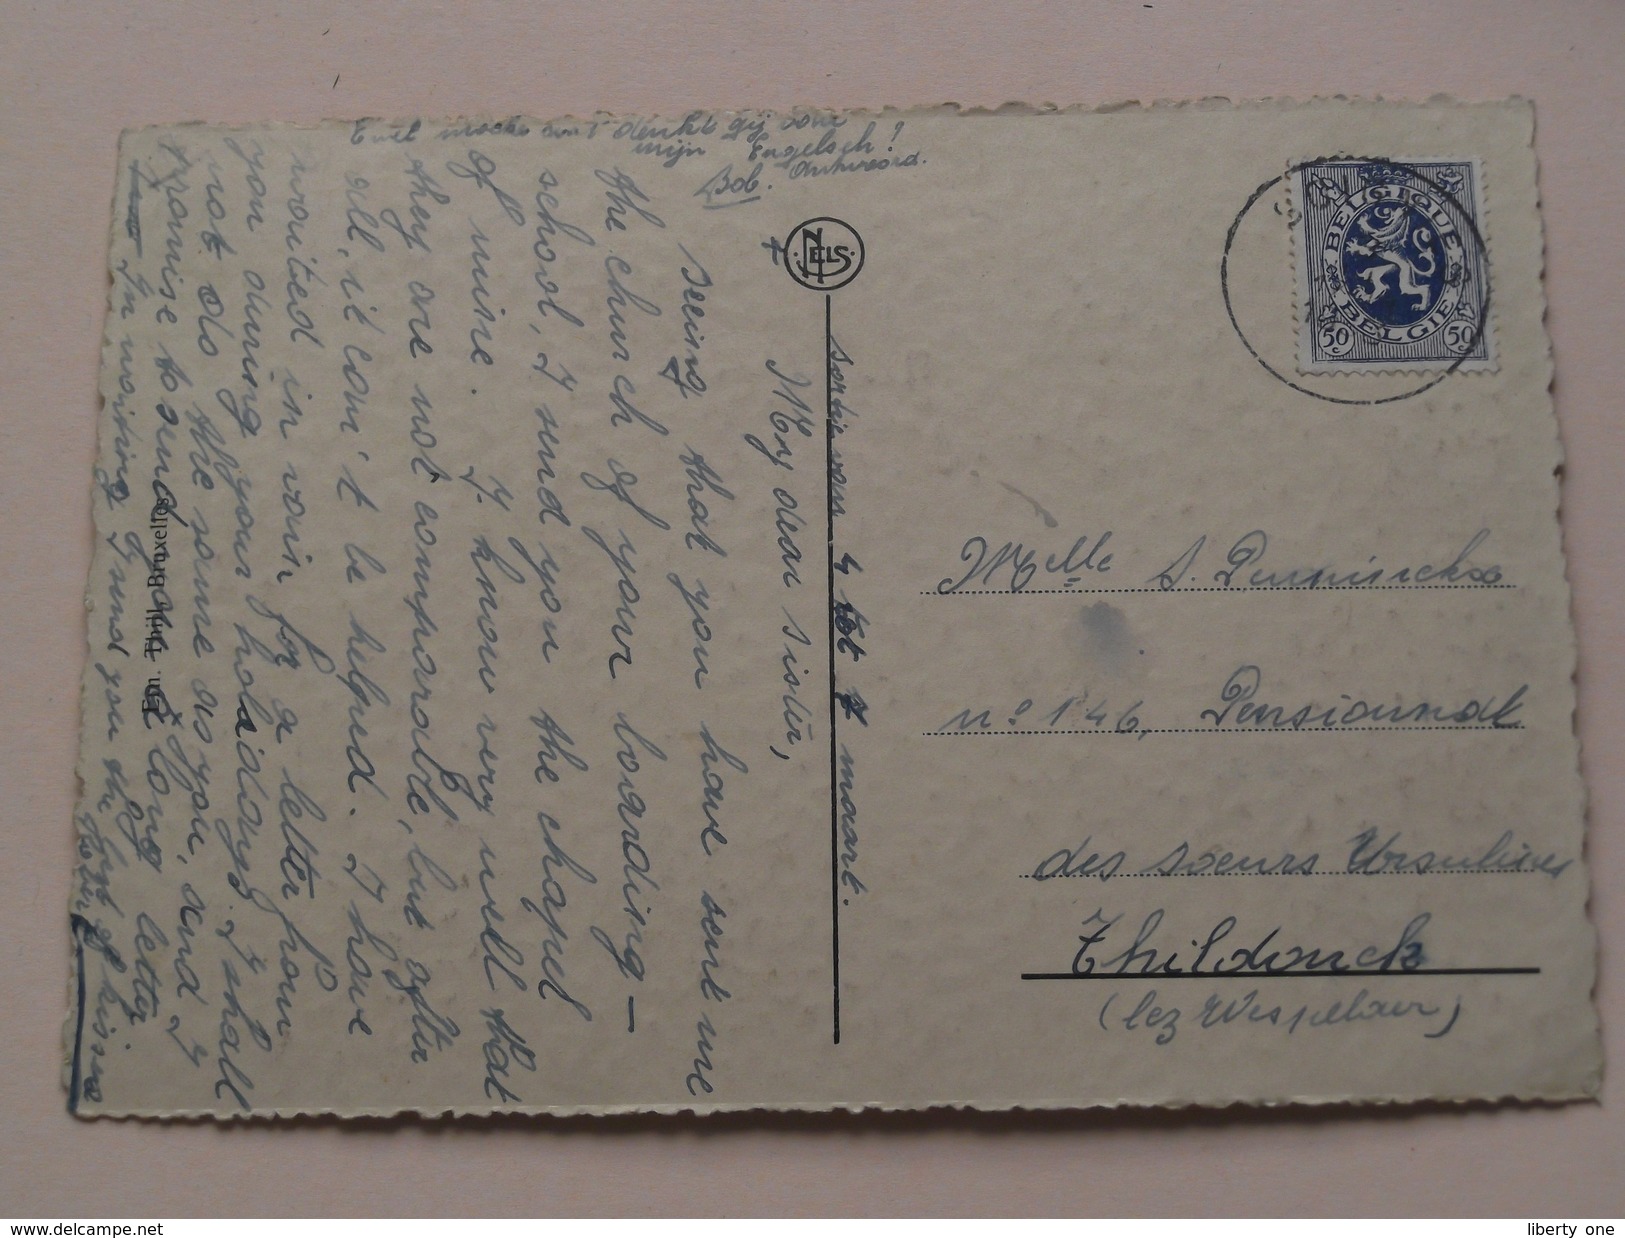 mijn Engelsch!
Bob. Antwoord.
sortie van 4 tot 7 maart.
My dear sister,
Seeing that you have sent me
the church of your boarding-
school, I send you the chapel
of mine. I know very well that
they are not comparable, but after
all, it can't be helped. I have
waited in vain for a letter from
you during your holidays. I shall
not do the same as you, and I
promise to send you a long letter
In waiting I send you the best of kisses
NELS
Ern. Thill, Bruxelles
BELGIQUE
BELGIE
50 c
50 c
Melle S. Penninckx
no 146, Pensionnat
des soeurs Ursulines
Thildonck
(lez Wespelaer)
www.delcampe.net
liberty_one